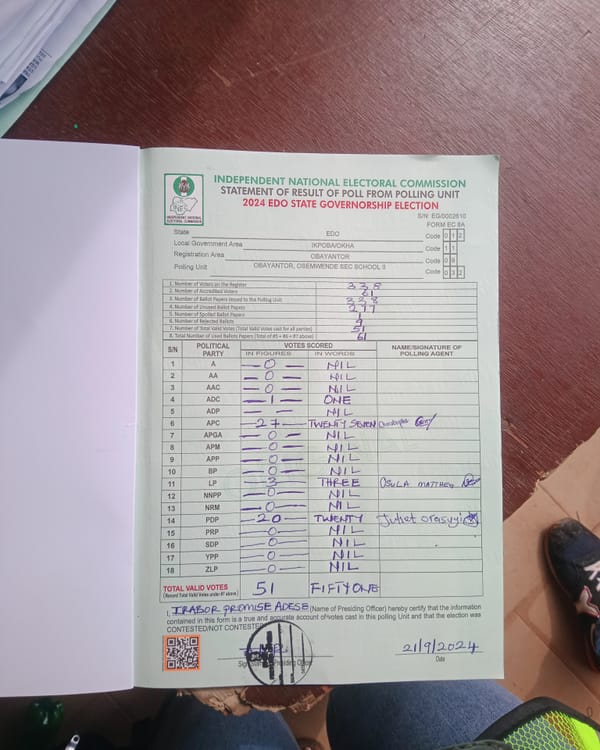 INDEPENDENT NATIONAL ELECTORAL COMMISSION
STATEMENT OF RESULT OF POLL FROM POLLING UNIT
2024 EDO STATE GOVERNORSHIP ELECTION
INEC
INDEPENDENT NATIONAL ELECTORAL COMMISSION
S/N: EG/0002610
FORM EC 8A
State EDO Code 0 1 2
Local Government Area IKPOBA/OKHA Code 1 1
Registration Area OBAYANTOR Code 0 9
Polling Unit OBAYANTOR, OSEMWENDE SEC SCHOOL II Code 0 3 2
1. Number of Voters on the Register 338
2. Number of Accredited Voters 61
3. Number of Ballot Papers Issued to the Polling Unit 338
4. Number of Unused Ballot Papers 277
5. Number of Spoiled Ballot Papers 1
6. Number of Rejected Ballots 9
7. Number of Total Valid Votes (Total Valid Votes cast for all parties) 51
8. Total Number of Used Ballots Papers (Total of #5 + #6 + #7 above) 61
S/N POLITICAL PARTY VOTES SCORED NAME/SIGNATURE OF POLLING AGENT
IN FIGURES IN WORDS
1 A 0 NIL
2 AA 0 NIL
3 AAC 0 NIL
4 ADC 1 ONE
5 ADP — — NIL
6 APC 27 TWENTY SEVEN
7 APGA 0 NIL
8 APM 0 NIL
9 APP 0 NIL
10 BP 0 NIL
11 LP 3 THREE OSULA MATTHEW
12 NNPP 0 NIL
13 NRM 0 NIL
14 PDP 20 TWENTY Juliet
15 PRP 0 NIL
16 SDP 0 NIL
17 YPP 0 NIL
18 ZLP 0 NIL
TOTAL VALID VOTES 51 FIFTY ONE
(Record Total Valid Votes under #7 above)
I, IRABOR PROMISE ADESE (Name of Presiding Officer) hereby certify that the information
contained in this form is a true and accurate account of votes cast in this polling Unit and that the election was
CONTESTED/NOT CONTESTED
21/9/2024
Date